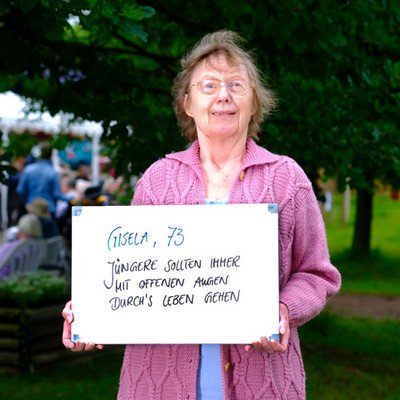 GISELA, 73
JÜNGERE SOLLTEN IMMER
MIT OFFENEN AUGEN
DURCH'S LEBEN GEHEN